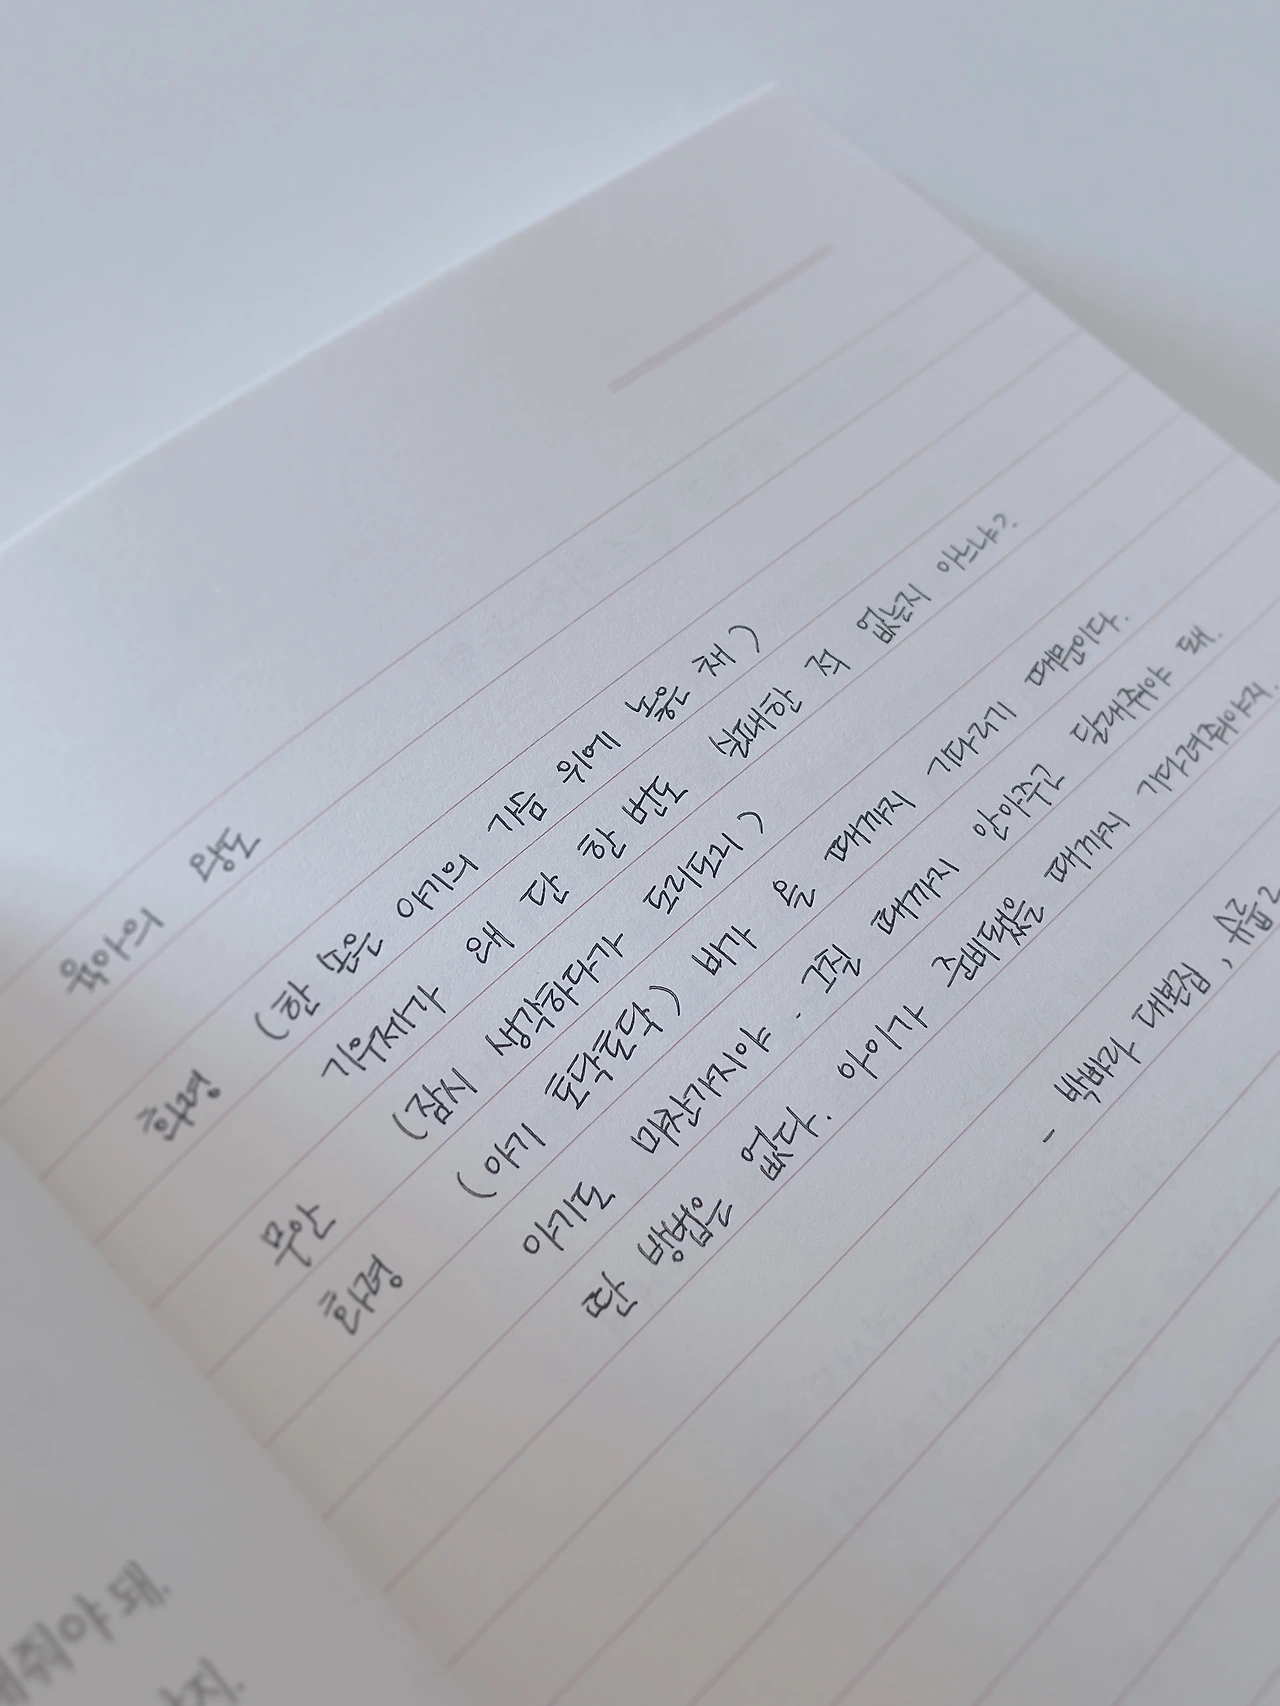 육아의 왕도
화평 (한 손은 아기의 가슴 위에 놓은 채)
기우제가 왜 단 한 번도 실패한 적 없는지 아느냐?
무안 (잠시 생각하다가 도리도리)
화평 (아기 토닥토닥) 비가 올 때까지 기다리기 때문이다.
아기도 마찬가지야. 그칠 때까지 안아주고 달래줘야 돼.
딴 방법은 없다. 아이가 준비됐을 때까지 기다려줘야지.
- 박바라 대본집, 슈룹2
줘야 돼.
지.